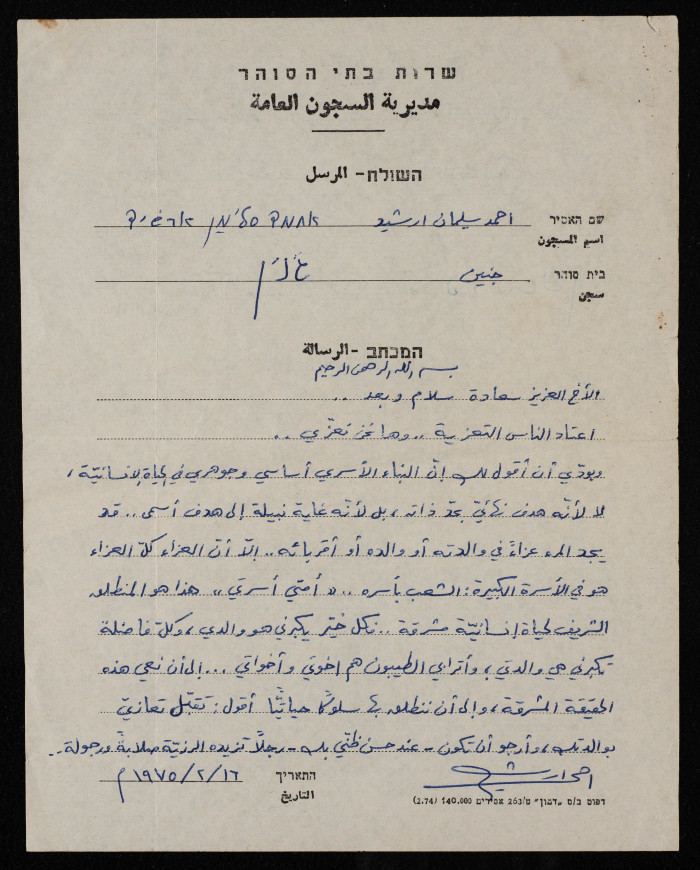 שרות בתי הסוהר
مديرية السجون العامة
השולח - المرسل
שם האסיר احمد سليمان ارشيد אחמד סלימן ארשיד
اسم المسجون
בית סוהר جنين ג'נין
سجن
המכתב - الرسالة
بسم الله الرحمن الرحيم
الأخ العزيز سعادة سلام وبعد ..
اعتاد الناس التعزية .. وها نحن نعزّي ..
وبودّي أن أقول لك إنّ البناء الأسري أساسي وجوهري في الحياة الإنسانيّة ،
لا لأنّه هدف نهائيّ بحدّ ذاته ، بل لأنّه غاية نبيلة إلى هدف أسمى .. قد
يجد المرء عزاءً في والدته أو والده أو أقربائه .. إلّا أنّ العزاء كلّ العزاء
هو في الأسرة الكبيرة : الشعب بأسره .. « أمتي أسرتي » هذا هو المنطلق
الشريف لحياة إنسانيّة مشرقة .. فكل خيّر يكبرني هو والدي ، وكلّ فاضلة
تكبرني هي والدتي ، وأترابي الطيبون هم اخوتي وأخواتي ... إلى أن نعي هذه
الحقيقة المشرقة ، وإلى أن ننطلق بها سلوكًا حياتيًّا أقول : تقبّل تعازيّ
بوالدتك ، وأرجو أن تكون - عند حسن ظنّي بك - رجلًا تزيده الرزيّة صلابةً ورجولة ..
احمد ارشيد
התאריך ١٦/٢/١٩٧٥ م
التاريخ
דפוס ב/ס "דמון" ט/263 אסירים 140.000 (2.74)